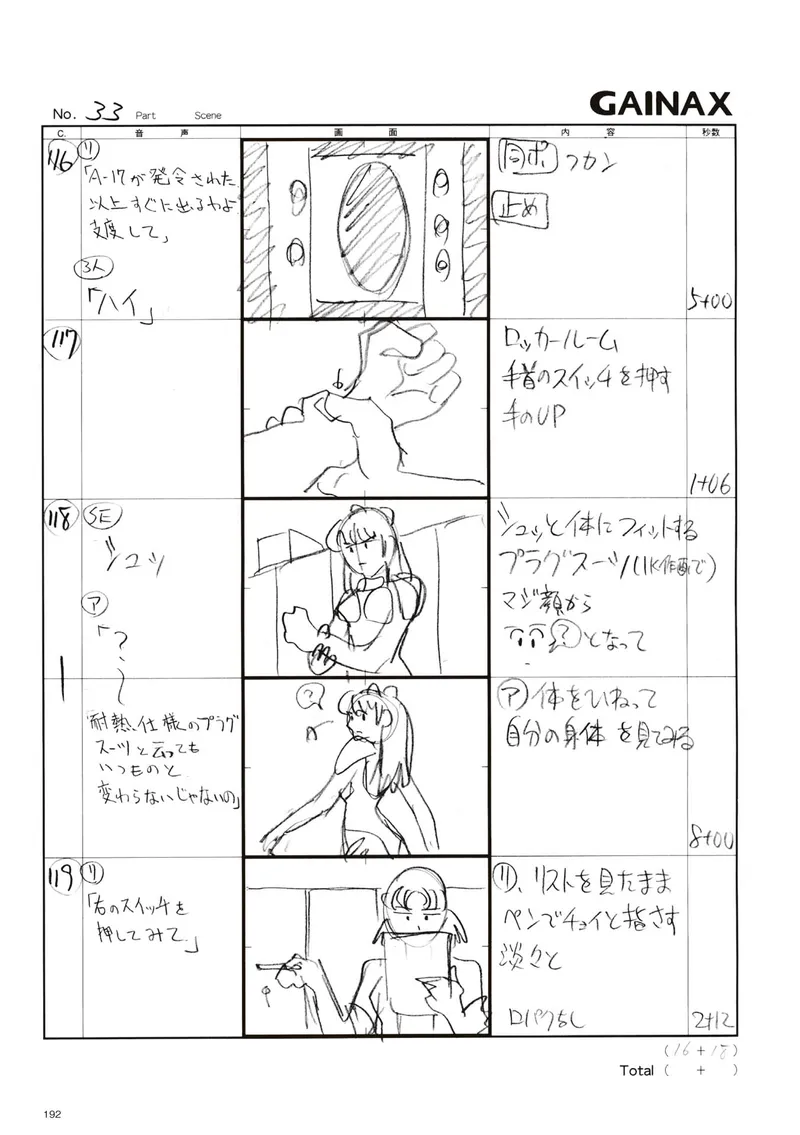 GAINAX
No. 33 Part Scene
C. 音声 画面 内容 秒数
116
リ
「A-17が発令された
以上すぐに出るわよ
支度して」
3人
「ハイ」
同ポ フカン
止め
5+00
117
ロッカールーム
手首のスイッチを押す
手のUP
1+06
118
SE
シュッ
ア
「?
シュッと体にフィットする
プラグスーツ(1K作画で)
マジ顔から
?となって
耐熱仕様のプラグ
スーツと云っても
いつものと
変わらないじゃないの」
?
ア 体をひねって
自分の身体を見てみる
8+00
119
リ
「右のスイッチを
押してみて」
リ、リストを見たまま
ペンでチョイと指さす
淡々と
口パクなし
2+12
(16+18)
Total ( + )
192